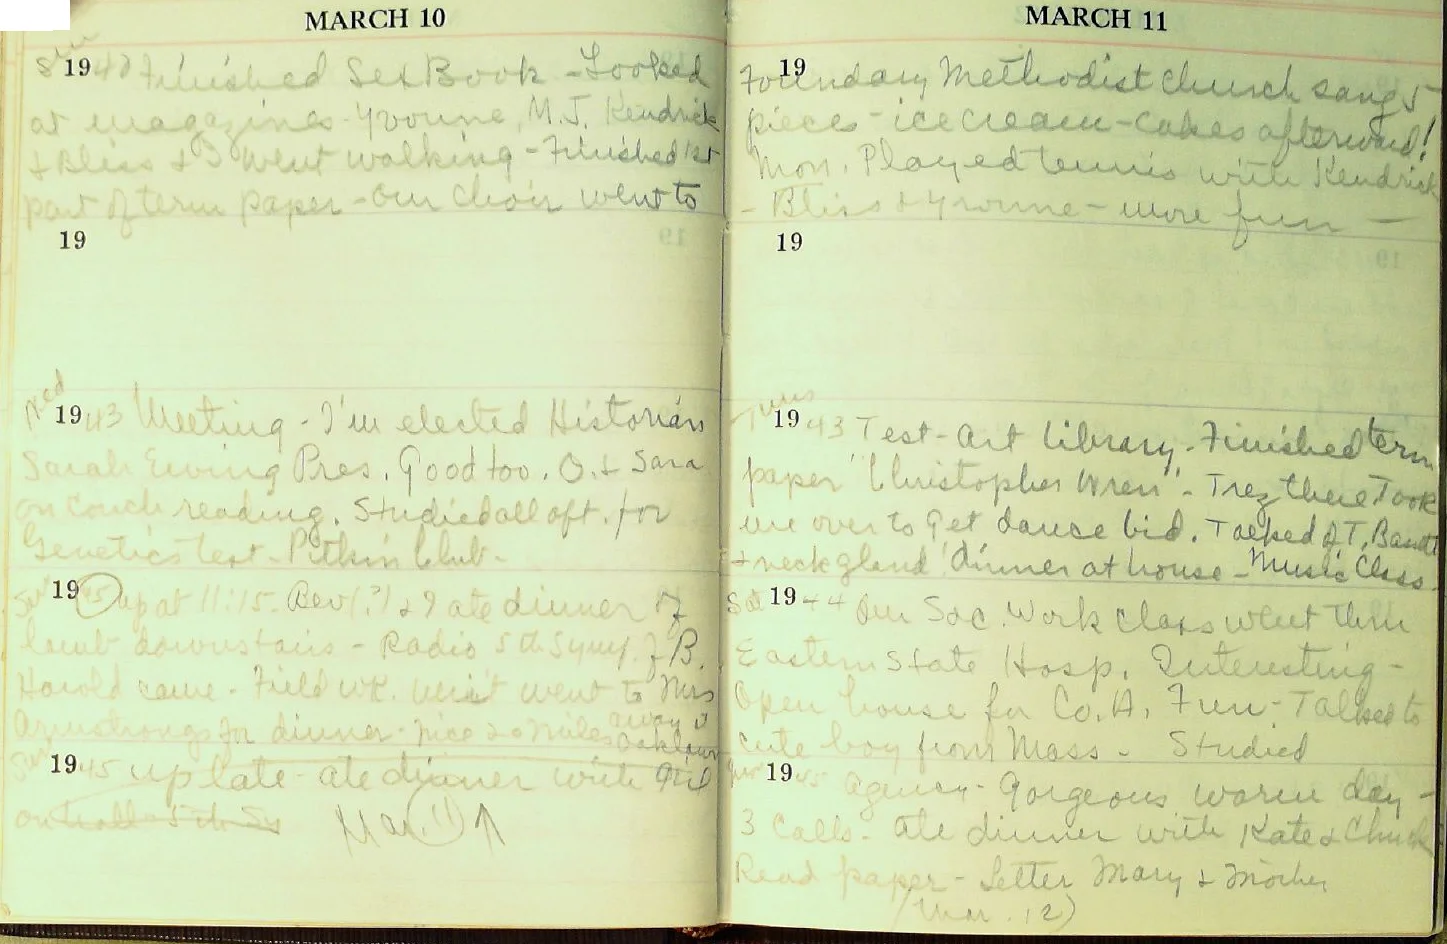 MARCH 10
Sun 19 40 Finished Sex Book - Looked
at magazines - Yvonne, M.J. Kendrick
& Bliss & I went walking - Finished 1st
part of term paper - Our choir went to
19
Wed 19 43 Meeting - I'm elected Historian
Sarah Ewing Pres. Good too. O. & Sara
on couch reading. Studied all aft. for
Genetics test - Pitkin Club -
19 45 up at 11:15. Bev & I ate dinner of
lamb downstairs - Radio 5th Symf. of B.
Harold came - Field wk. unit went to Mrs
Armstrongs for dinner - nice 20 miles away
19 45 up late - ate dinner with
on hall - 5th Sy Mar. 11) ↑
MARCH 11
19 Foundary Methodist Church sang 5
pieces - ice cream - cakes afterward!
Mon. Played tennis with Kendrick
- Bliss & Yvonne - more fun -
19
Thurs 19 43 Test - Art Library - Finished term
paper "Christopher Wren" - Trez there Took
me over to get dance bid. Talked of T,
& neck gland dinner at house - Music Class
Sat 19 44 Our Soc. Work class went thru
Eastern State Hosp. Interesting -
Open house for Co. A, Fun - Talked to
cute boy from Mass - Studied
19 45 Agency - Gorgeous warm day -
3 calls - ate dinner with Kate & Chuck
Read paper - Letter Mary & Mother
(Mar. 12)